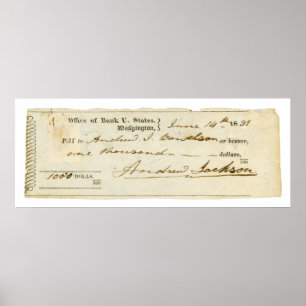 Office of Bank U. States,
Washington, June 14th 1831
PAY to Andrew J. Donelson or bearer,
one thousand dollars, /100
1000 DOLLS. /100 Andrew Jackson